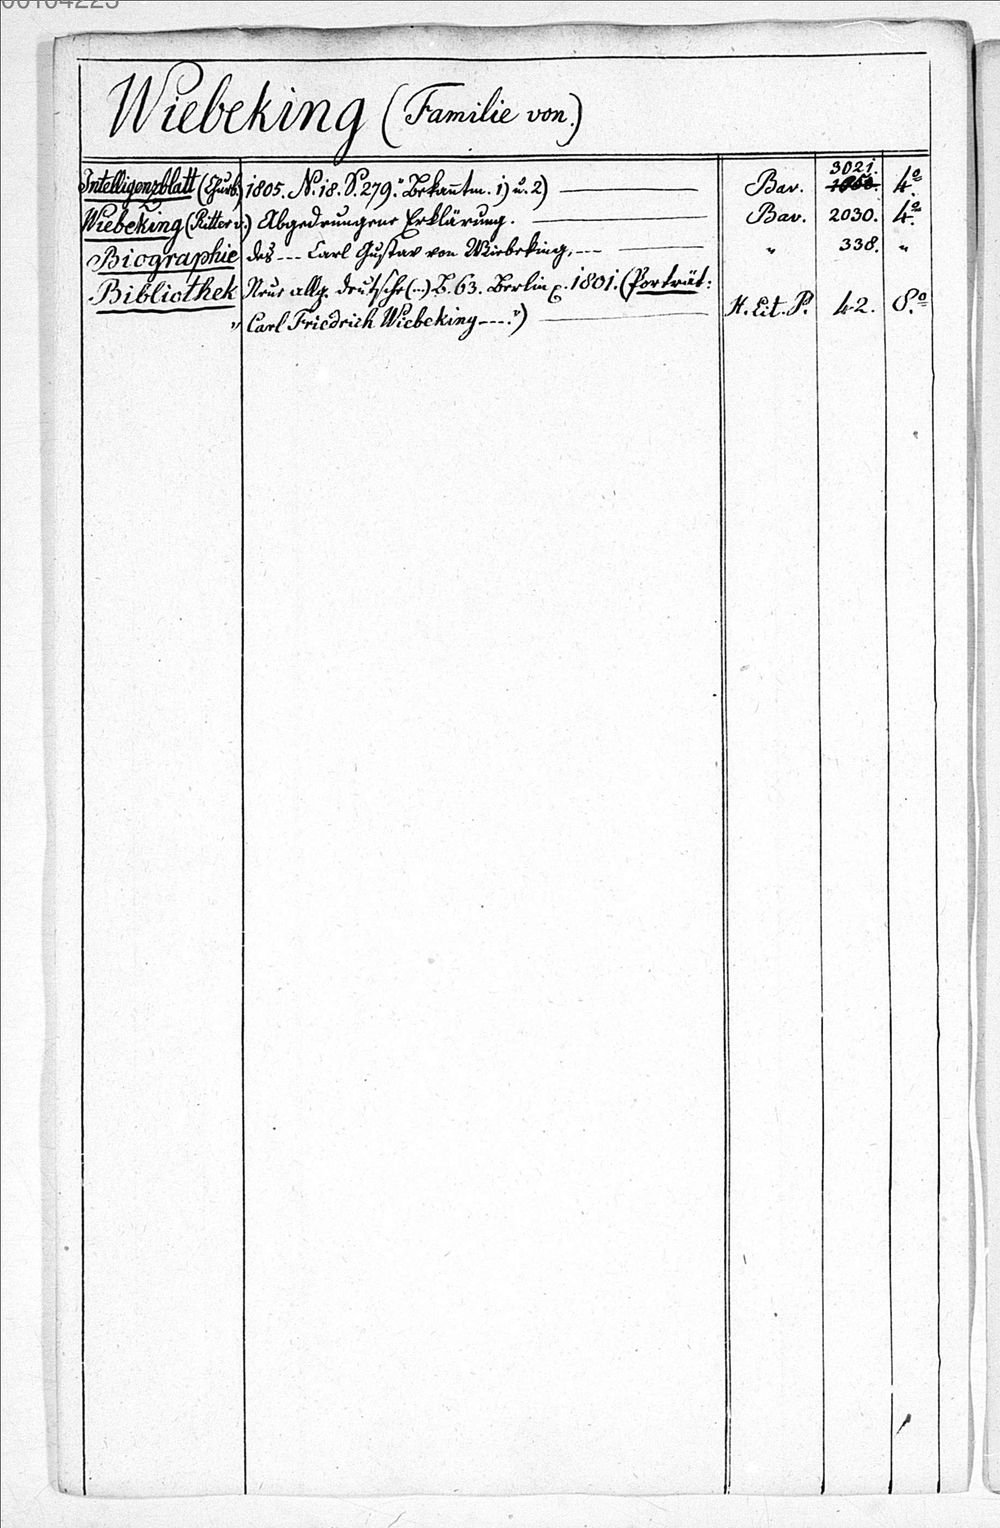 00104223
Wiebeking (Familie von.)
Intelligenzblatt (Churb.) 1805. N. 18. S. 279. "Bekanntm. 1) u. 2) Bav. 3021. 4º
Wiebeking (Ritter v.) Abgedrungene Erklärung. Bav. 2030. 4º.
Biographie des --- Carl Gustav von Wiebeking, --- " 338. "
Bibliothek Neue allg. deutsche (--) B. 63. Berlin p. 1801. (Porträt:
" Carl Friedrich Wiebeking ----.") H. Lit. P. 42. 8.º